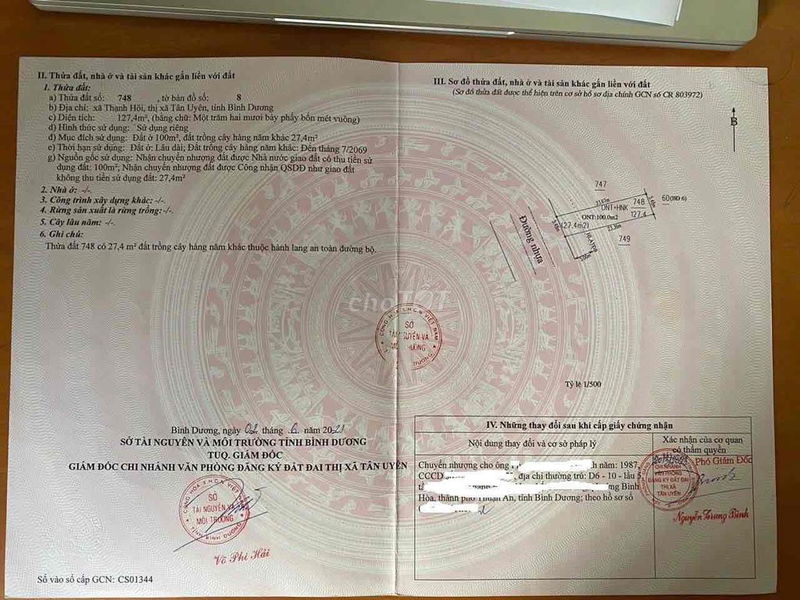 II. Thửa đất, nhà ở và tài sản khác gắn liền với đất
1. Thửa đất:
a) Thửa đất số: 748 , tờ bản đồ số: 8
b) Địa chỉ: xã Thạnh Hội, thị xã Tân Uyên, tỉnh Bình Dương
c) Diện tích: 127,4m², (bằng chữ: Một trăm hai mươi bảy phẩy bốn mét vuông)
d) Hình thức sử dụng: Sử dụng riêng
đ) Mục đích sử dụng: Đất ở 100m², đất trồng cây hàng năm khác 27,4m²
e) Thời hạn sử dụng: Đất ở: Lâu dài; Đất trồng cây hàng năm khác: Đến tháng 7/2069
g) Nguồn gốc sử dụng: Nhận chuyển nhượng đất được Nhà nước giao đất có thu tiền sử
dụng đất: 100m²; Nhận chuyển nhượng đất được Công nhận QSDĐ như giao đất
không thu tiền sử dụng đất: 27,4m²
2. Nhà ở: -/-
3. Công trình xây dựng khác: -/-
4. Rừng sản xuất là rừng trồng: -/-
5. Cây lâu năm: -/-
6. Ghi chú:
Thửa đất 748 có 27,4 m² đất trồng cây hàng năm khác thuộc hành lang an toàn đường bộ.
Bình Dương, ngày tháng 6 năm 2021
SỞ TÀI NGUYÊN VÀ MÔI TRƯỜNG TỈNH BÌNH DƯƠNG
TUQ. GIÁM ĐỐC
GIÁM ĐỐC CHI NHÁNH VĂN PHÒNG ĐĂNG KÝ ĐẤT ĐAI THỊ XÃ TÂN UYÊN
SỞ
TÀI NGUYÊN VÀ
MÔI TRƯỜNG
TỈNH BÌNH DƯƠNG
Võ Phi Hải
Số vào sổ cấp GCN: CS01344
III. Sơ đồ thửa đất, nhà ở và tài sản khác gắn liền với đất
(Sơ đồ thửa đất được thể hiện trên cơ sở hồ sơ địa chính GCN số CR 803972)
B
747
ONT+HNK 748
60
ONT:100.0m2 127.4
(27.4m2)
749
HLATĐB
Đường nhựa
choTOT
SỞ
TÀI NGUYÊN VÀ
MÔI TRƯỜNG
Tỷ lệ 1/500
IV. Những thay đổi sau khi cấp giấy chứng nhận
Nội dung thay đổi và cơ sở pháp lý
Xác nhận của cơ quan
có thẩm quyền
Chuyển nhượng cho ông năm: 1987,
CCCD , địa chỉ thường trú: D6 - 10 - lầu
Bình
Hòa, thành phố Thuận An, tỉnh Bình Dương; theo hồ sơ số
Phó Giám Đốc
CHI NHÁNH
VĂN PHÒNG
ĐĂNG KÝ ĐẤT ĐAI
THỊ XÃ
TÂN UYÊN
Nguyễn Trung Bình